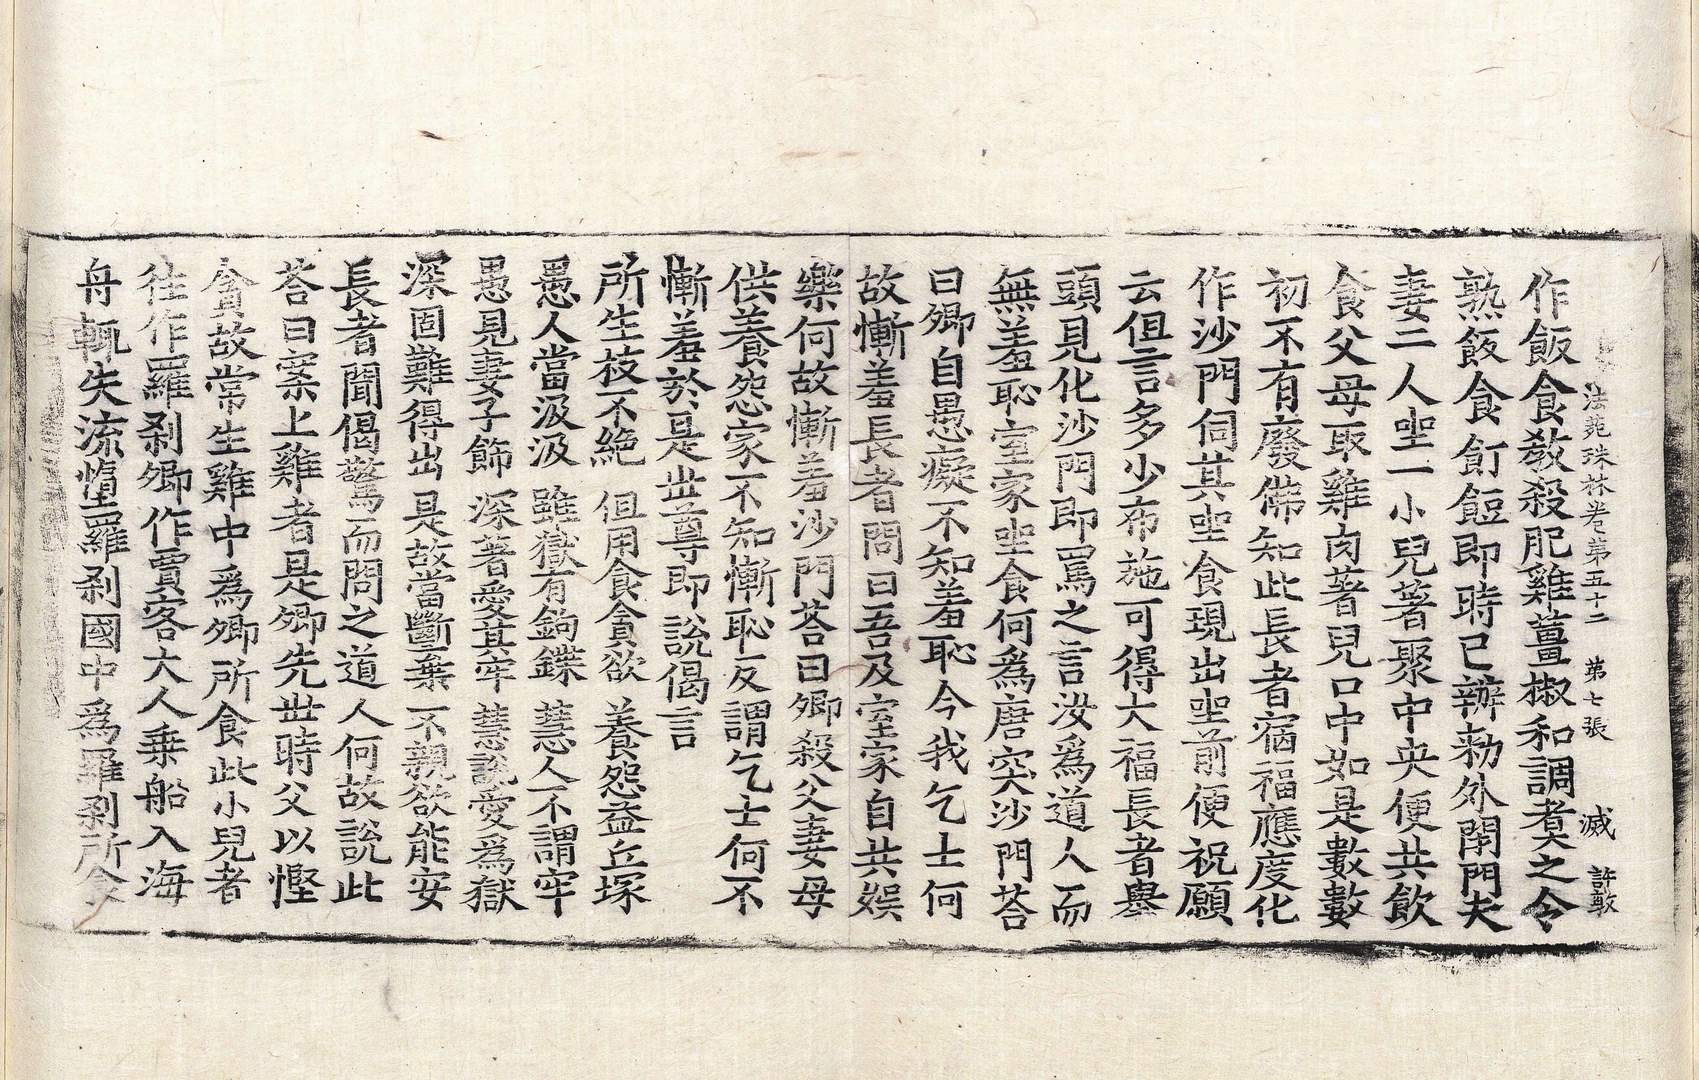 法苑珠林卷第五十二　第七張　滅　許敢
作飯食教殺肥雞薑椒和調煑之令
熟飯食飣餖即時已辦勑外閉門夫
妻二人坐一小兒著聚中央便共飲
食父母取雞肉著兒口中如是數數
初不有廢佛知此長者宿福應度化
作沙門伺其坐食現出坐前便祝願
云但言多少布施可得大福長者舉
頭見化沙門即罵之言汝爲道人而
無羞恥室家坐食何爲唐突沙門荅
曰卿自愚癡不知羞恥今我乞士何
故慚羞長者問曰吾及室家自共娛
樂何故慚羞沙門荅曰卿殺父妻母
供養怨家不知慚恥反謂乞士何不
慚羞於是世尊即說偈言
所生枝不絶　但用食貪欲　養怨益丘塚
愚人當汲汲　雖獄有鉤鎍　慧人不謂牢
愚見妻子飾　深著愛其牢　慧說愛爲獄
深固難得出　是故當斷棄　不親欲能安
長者聞偈驚而問之道人何故說此
荅曰案上雞者是卿先世時父以慳
貪故常生雞中爲卿所食此小兒者
往作羅刹卿作賈客大人乗船入海
舟輒失流墮羅刹國中爲羅刹所食